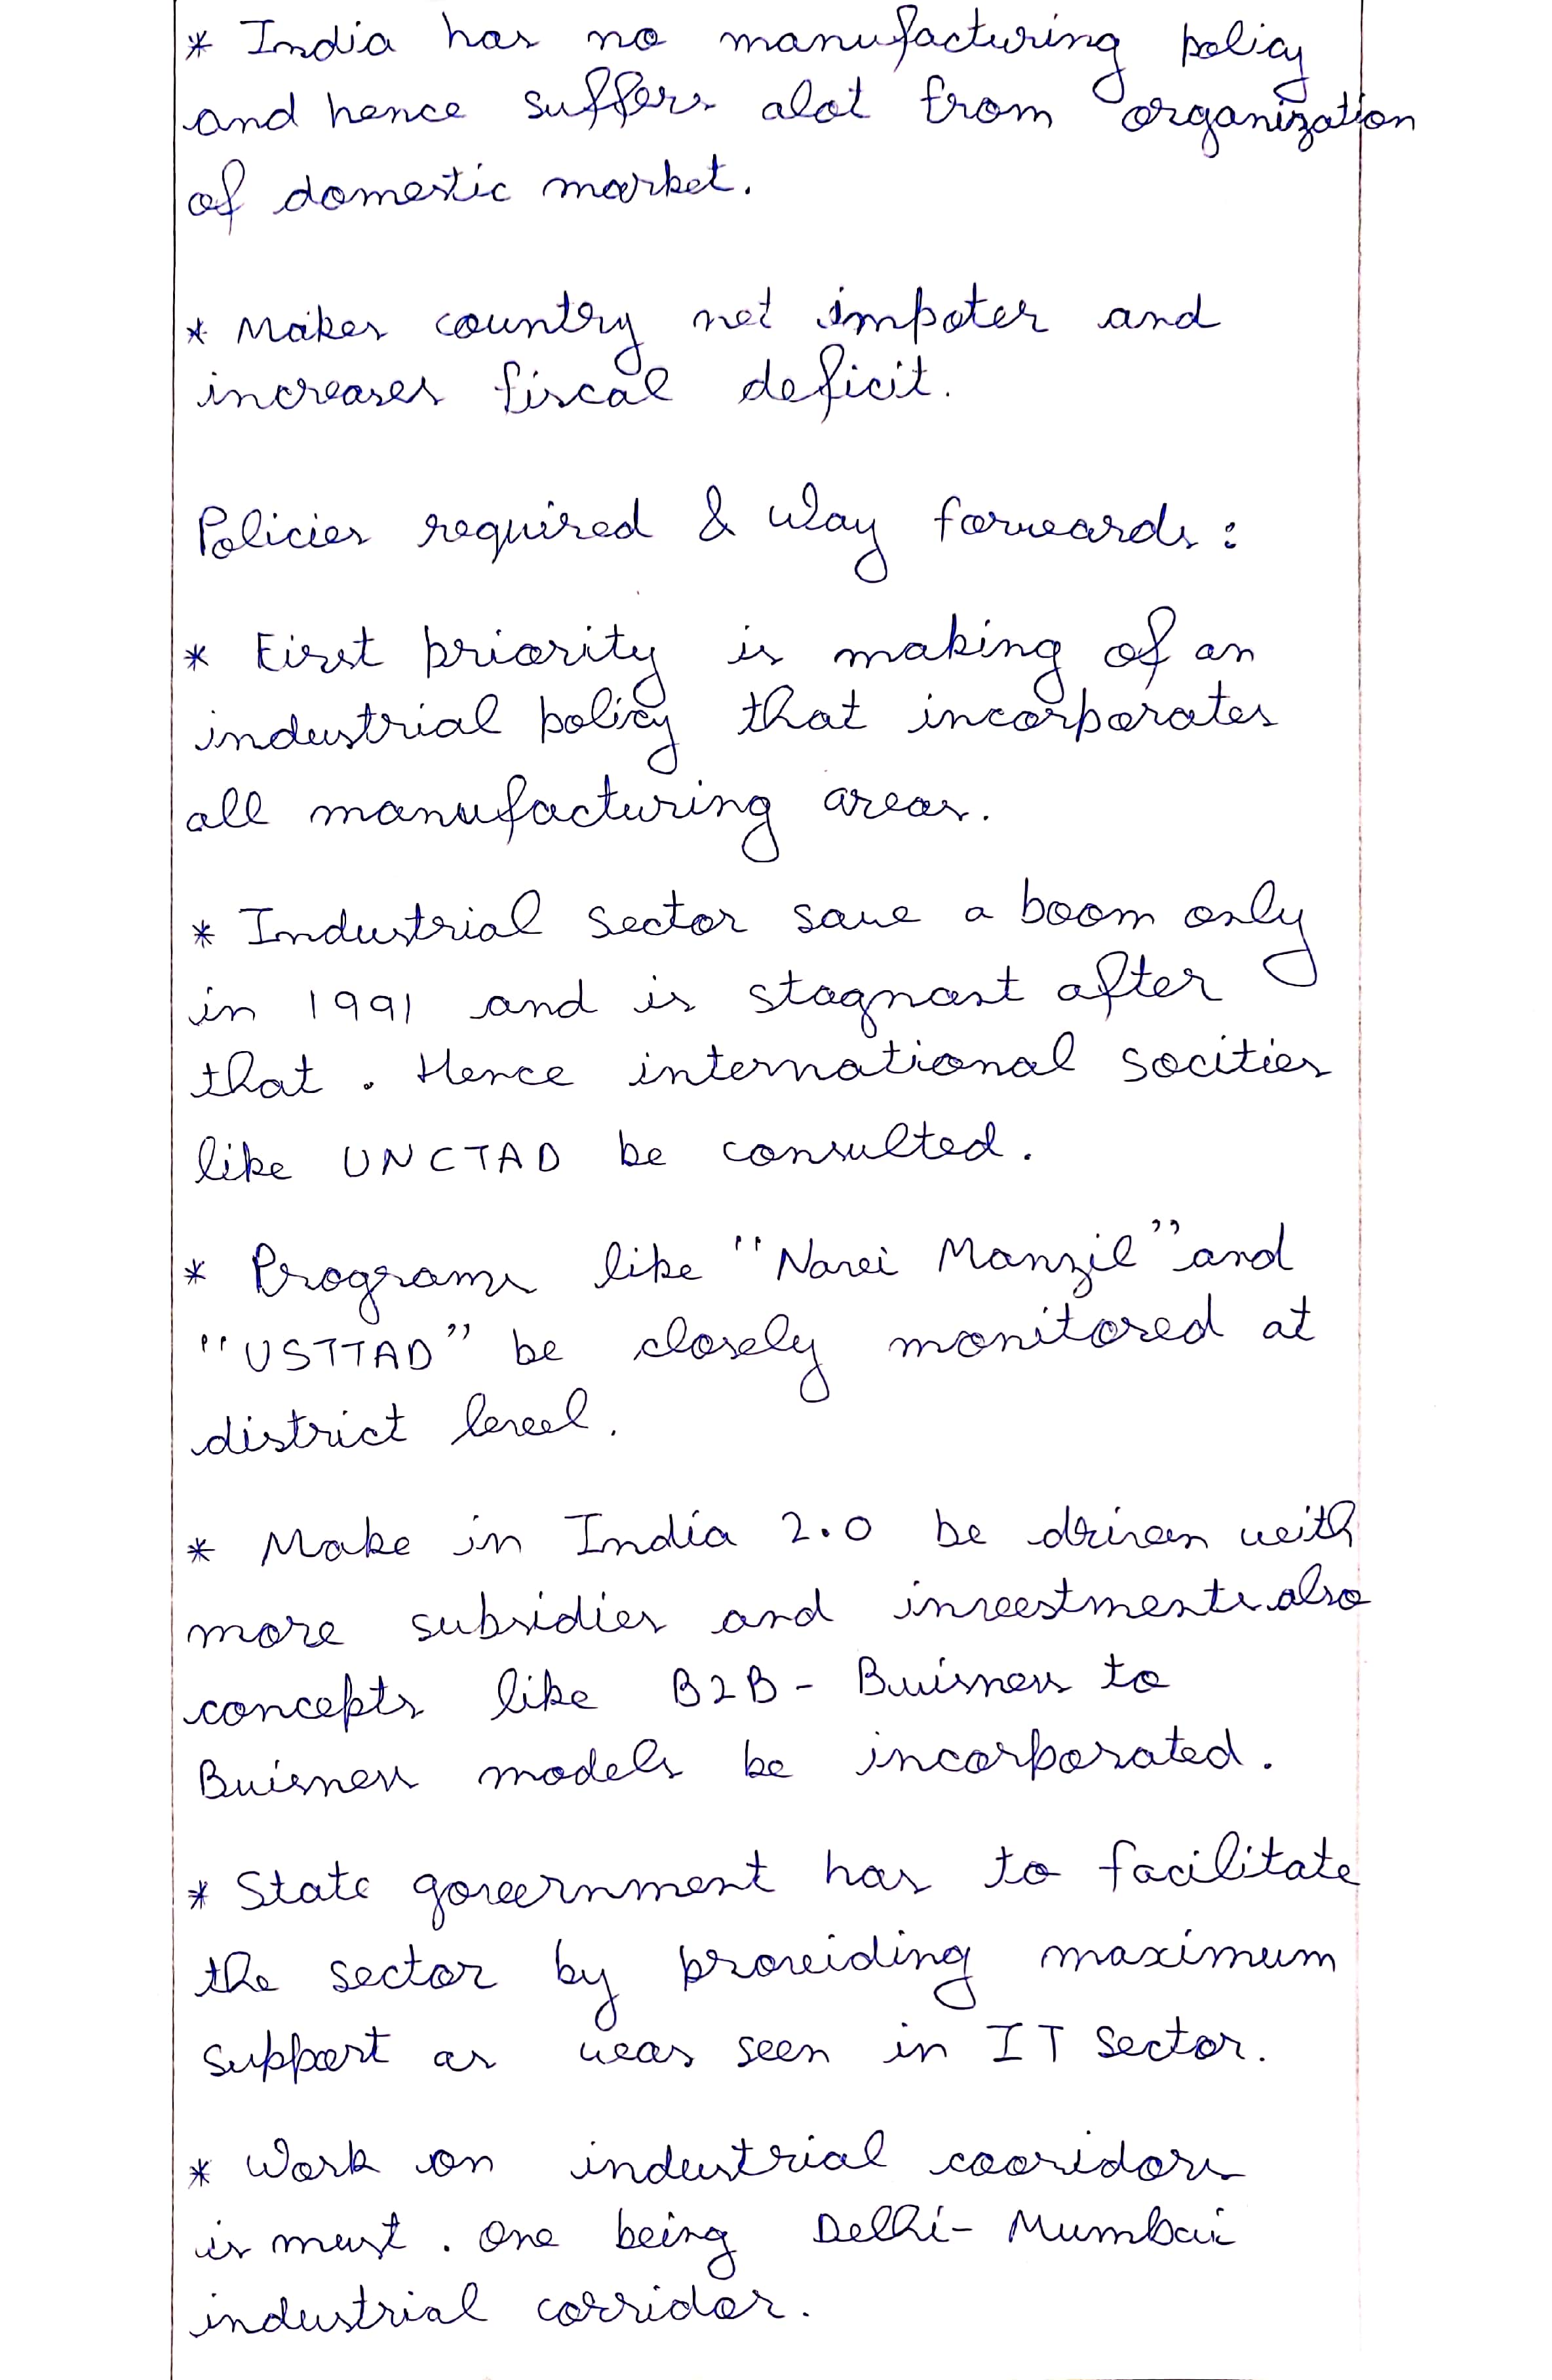 * India has no manufacturing policy
and hence suffers alot from organization
of domestic market.
* Makes country net impoter and
increases fiscal deficit.
Policies required & Way forwards :
* First priority is making of an
industrial policy that incorporates
all manufacturing areas.
* Industrial Sector saw a boom only
in 1991 and is stagnant after
that . Hence international socities
like UNCTAD be consulted.
* Programs like "Narei Manzil" and
"USTTAD" be closely monitored at
district level.
* Make in India 2.0 be driven with
more subsidies and investments also
concepts like B2B - Buisness to
Buisness models be incorporated.
* State government has to facilitate
the sector by providing maximum
support as was seen in IT Sector.
* Work on industrial cooridors
is must . One being Delhi - Mumbai
industrial corridor.